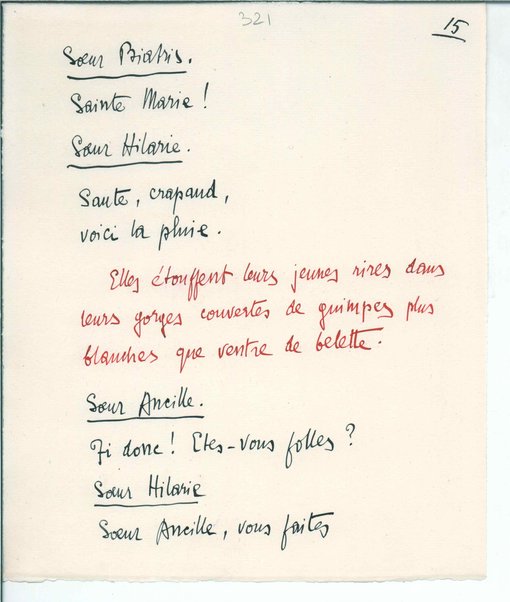 321
15
Sœur Biatris.
Sainte Marie !
Sœur Hilarie.
Saute, crapaud,
voici la pluie.
Elles étouffent leurs jeunes rires dans
leurs gorges couvertes de guimpes plus
blanches que ventre de belette.
Sœur Ancille.
Fi donc ! Etes-vous folles ?
Sœur Hilarie
Sœur Ancille, vous faites